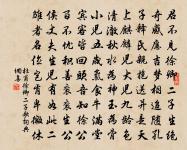 君不見徐卿二子生絕
奇感應吉夢相追隨孔
子釋氏親抱送並是天
上麒麟兒大兒九齡色
清澈秋水為神玉為骨
小兒五歲氣食牛滿堂
賓客皆回頭吾知徐公
百不憂積善袞袞生公
侯丈夫生兒有如此二
雛者名位豈肯卑微休
杜甫徐卿二子歌